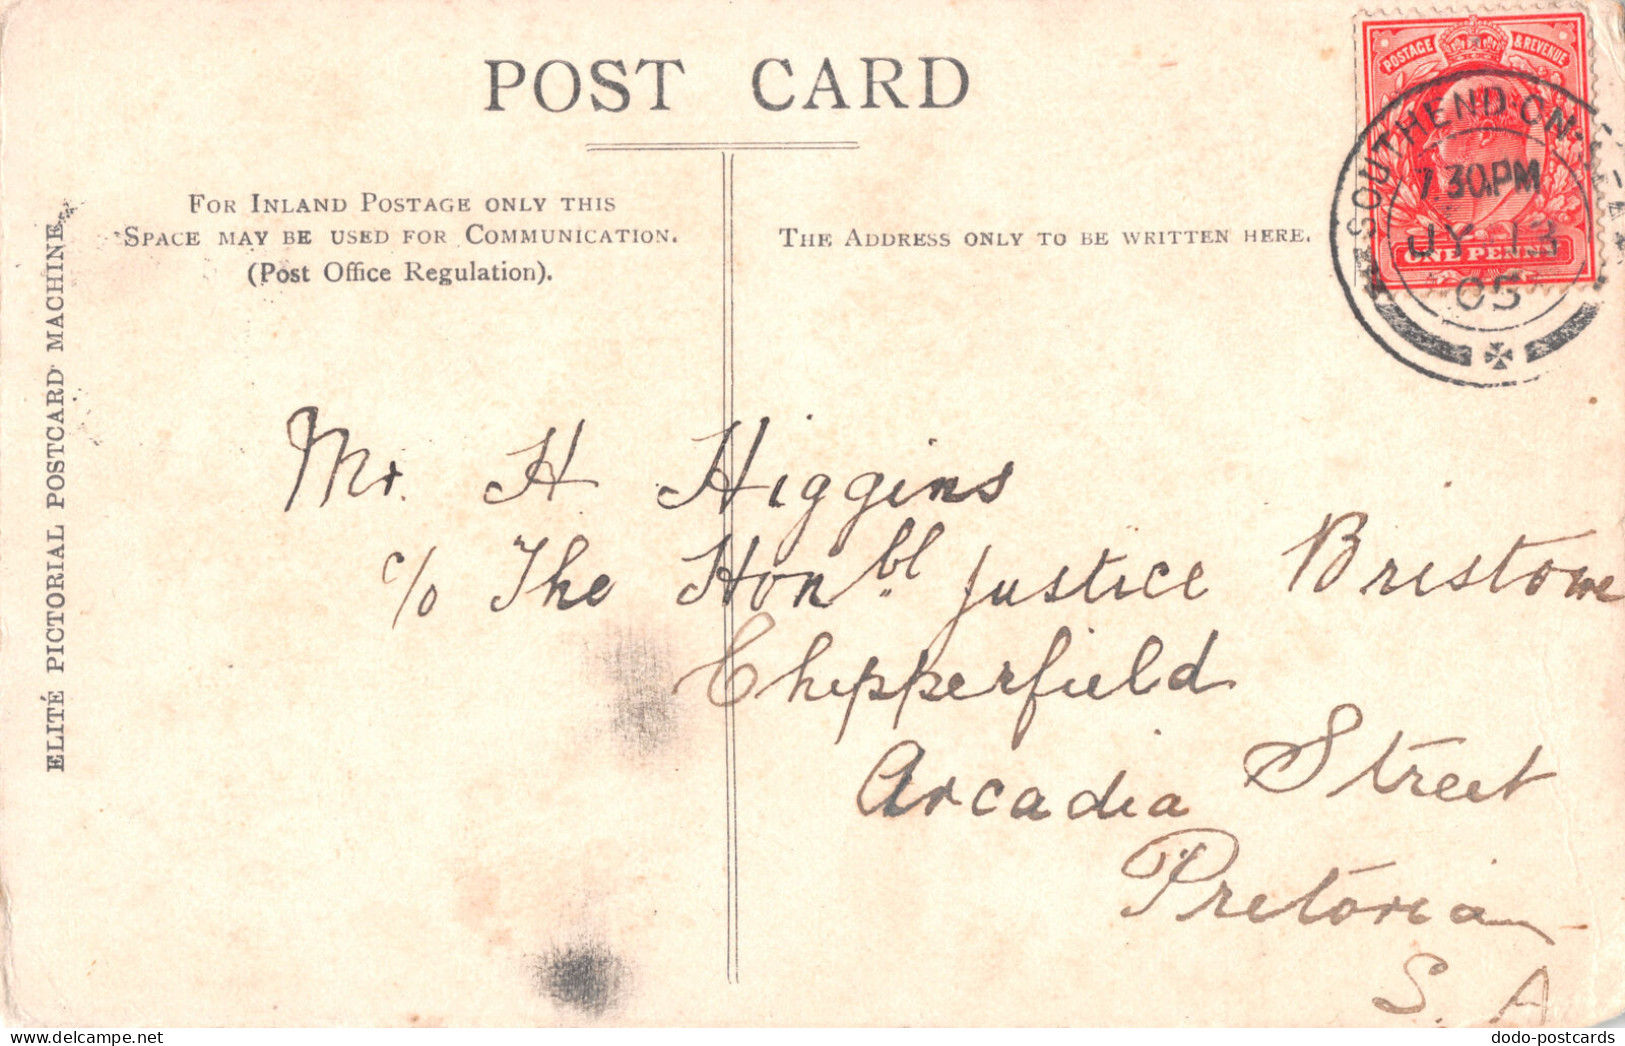 POST CARD
FOR INLAND POSTAGE ONLY THIS
SPACE MAY BE USED FOR COMMUNICATION.
(Post Office Regulation).
THE ADDRESS ONLY TO BE WRITTEN HERE.
POSTAGE & REVENUE
ONE PENNY
SOUTHEND·ON
7.30PM
JY 13
05
ELITÉ PICTORIAL POSTCARD MACHINE
Mr. H Higgins
c/o The Honbl Justice Bristowe
Chipperfield
Arcadia Street
Pretoria
S. A
dodo-postcards